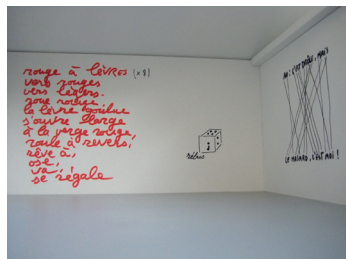 rouge à lèvres (x 8)
vers rouges
vers légers.
roue rouge,
la lèvre
s'ouvre large
à la verge rouge,
roule à revers,
rêve à,
ose,
va,
se régale
rébus
AH! C'EST DRÔLE, MAIS
LE HASARD, C'EST MOI!